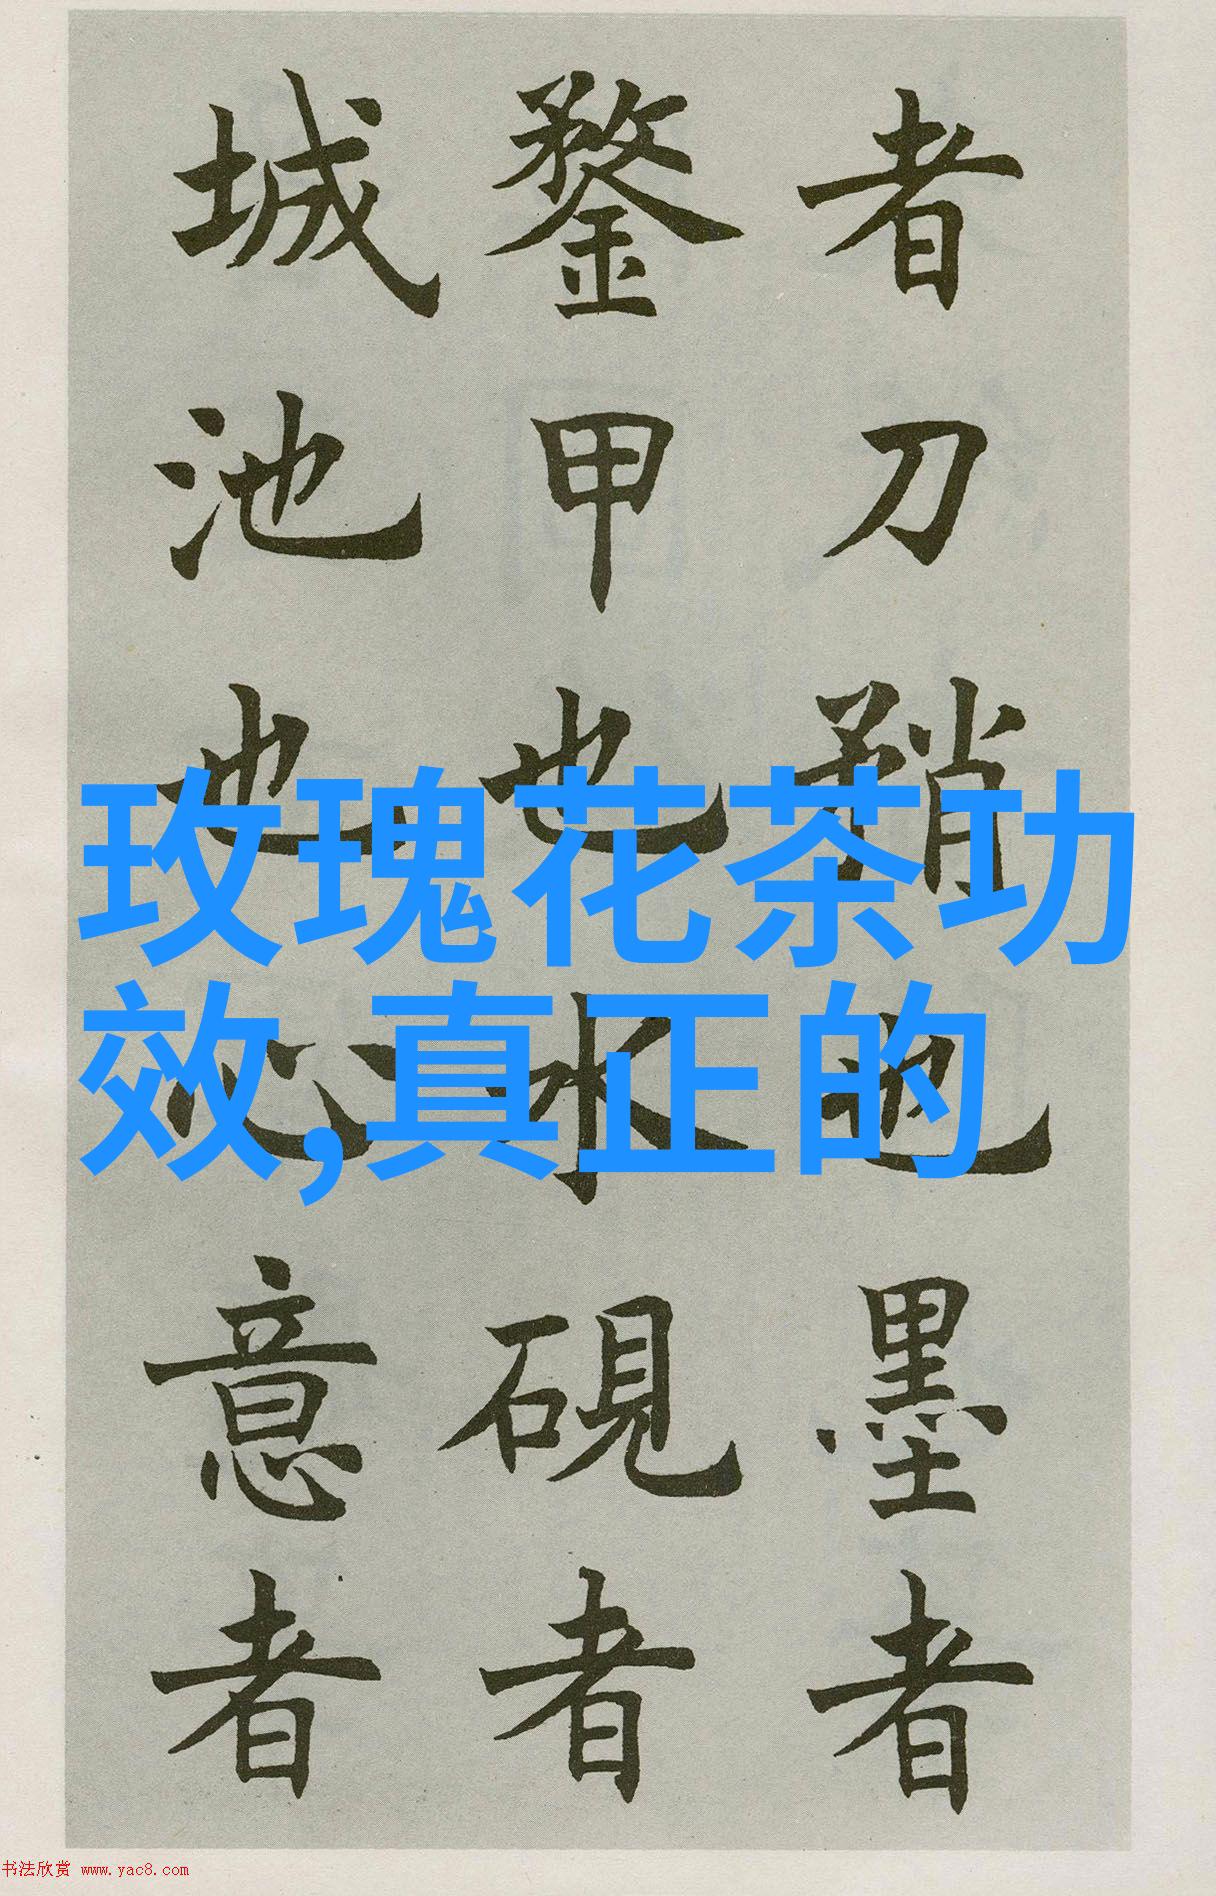 玫瑰花茶功
效,真正的
者刀矟也墨者
鍪甲也水硯者
城池也心意者
书法欣赏 www.yac8.com